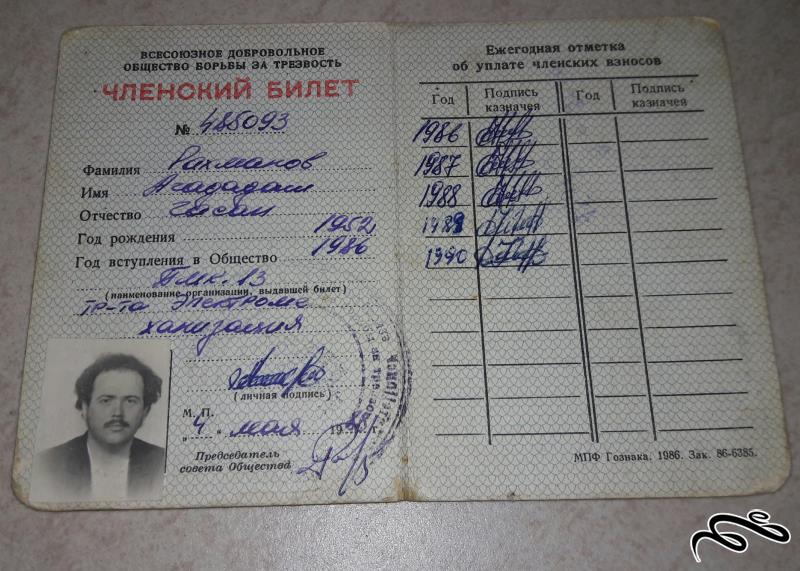 ВСЕСОЮЗНОЕ ДОБРОВОЛЬНОЕ
ОБЩЕСТВО БОРЬБЫ ЗА ТРЕЗВОСТЬ
ЧЛЕНСКИЙ БИЛЕТ
№ 485093
Фамилия Рахманов
Имя Агададаш
Отчество Гасан
Год рождения 1952
Год вступления в Общество 1986
ПМК-13
(наименование организации, выдавшей билет)
тр-та Электроме
ханизация
(личная подпись)
М. П.
„4“ мая 198 г.
Председатель
совета Общества
Ежегодная отметка
об уплате членских взносов
Год Подпись казначея Год Подпись казначея
1986
1987
1988
1989
1990
МПФ Гознака. 1986. Зак. 86-6385.